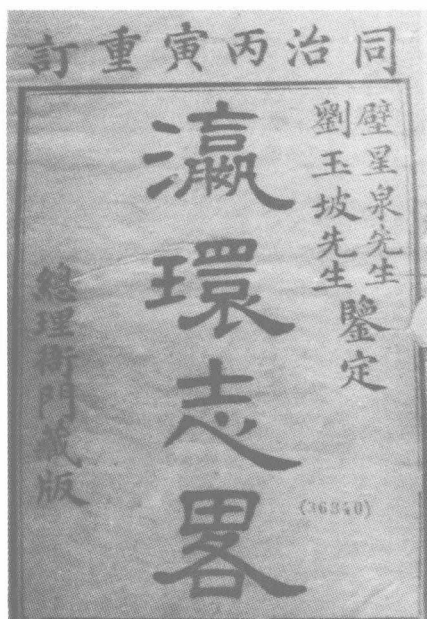 同治丙寅重訂
璧星泉先生
劉玉坡先生
鑒定
瀛環志畧
(36340)
總理衙門藏版